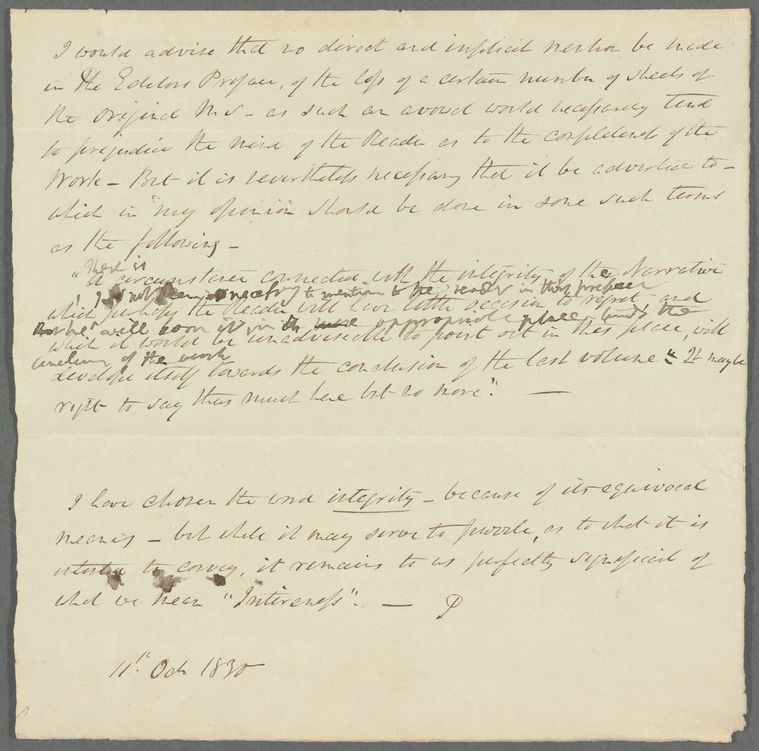 I would advise that no direct and implicit mention be made
in the Editors Preface, of the loss of a certain number of sheets of
the original M.S - as such an avowal would necessarily tend
to prejudice the mind of the Reader as to the completeness of the
Work - But it is nevertheless necessary that it be adverted to -
which in my opinion should be done in some such terms
as the following -
"There is
A circumstance connected with the integrity of the Narrative
necessary to mention to the reader in this preface
which perhaps the Reader will have little occasion to regret and
will be found in its more appropriate place towards the
which it would be unadviseable to point out in this place, will
conclusion of the work
develope itself towards the conclusion of the last volume" It may be
right to say thus much here but no more". —
I have chosen the word integrity - because of its equivocal
meaning - but while it may serve to puzzle, as to what it is
intended to convey, it remains to us perfectly significant of
what we mean "Entireness". — P
11th. Octr 1830